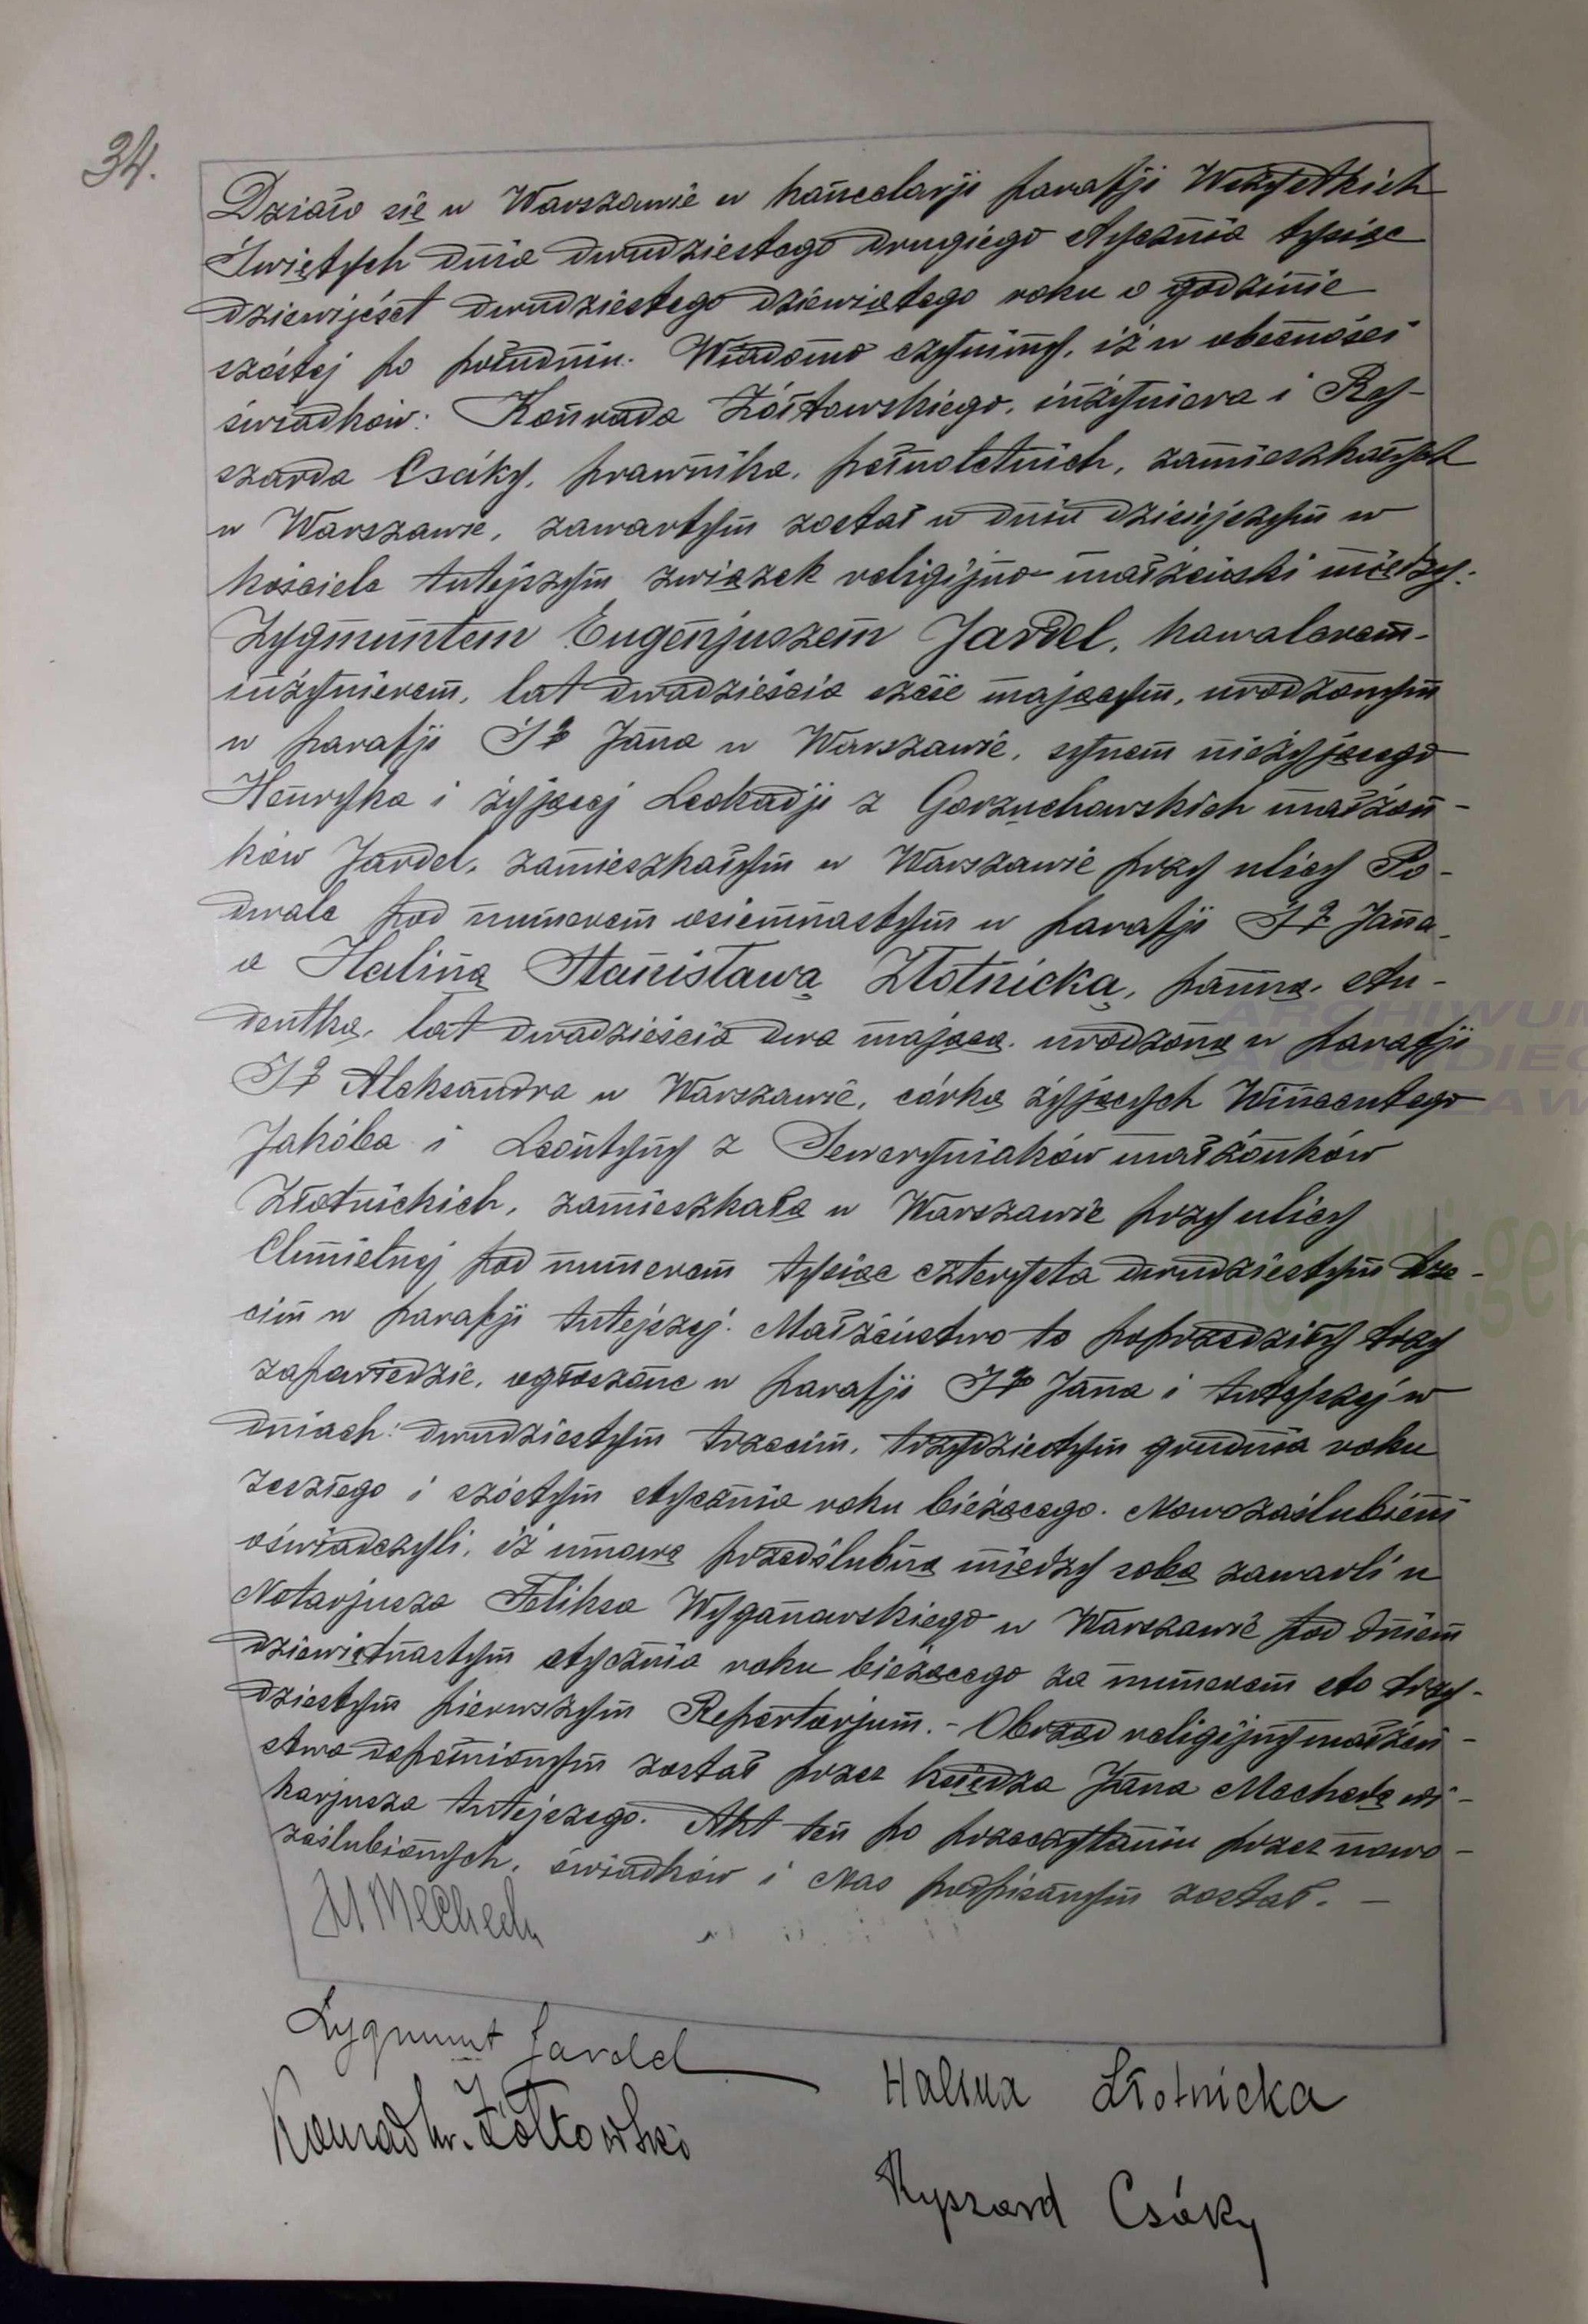 34.
Działo się w Warszawie w kancelarji parafji Wszystkich
Świętych dnia dwudziestego drugiego stycznia tysiąc
dziewięćset dwudziestego dziewiątego roku o godzinie
szóstej po południu. Wiadomo czynimy, iż w obecności
świadków: Konrada Żółtowskiego, inżyniera i Ry-
szarda Csáky, prawnika, pełnoletnich, zamieszkałych
w Warszawie, zawartym został w dniu dzisiejszym w
kościele tutejszym związek religijno-małżeński między:
Zygmuntem Eugenjuszem Jardel, kawalerem-
inżynierem, lat dwadzieścia sześć mającym, urodzonym
w parafji Sgo Jana w Warszawie, synem nieżyjącego
Henryka i żyjącej Leokadji z Gorzuchowskich małżon-
ków Jardel, zamieszkałym w Warszawie przy ulicy Po-
dwale pod numerem osiemnastym w parafji Sgo Jana
a Haliną Stanisławą Złotnicką, panną, stu-
dentką, lat dwadzieścia dwa mającą, urodzoną w parafji
Sgo Aleksandra w Warszawie, córką żyjących Wincentego
Jakóba i Leontyny z Seweryniaków małżonków
Złotnickich, zamieszkałą w Warszawie przy ulicy
Chmielnej pod numerem tysiąc czterysta dwudziestym trze-
cim w parafji tutejszej. Małżeństwo to poprzedziły trzy
zapowiedzie, ogłoszone w parafji Sgo Jana i tutejszej w
dniach: dwudziestym trzecim, trzydziestym grudnia roku
zeszłego i szóstym stycznia roku bieżącego. Nowozaślubieni
oświadczyli, iż umowę przedślubną między sobą zawarli u
Notarjusza Feliksa Wyganowskiego w Warszawie pod dniem
dziewiętnastym stycznia roku bieżącego za numerem sto trzy-
dziestym pierwszym Repertorjum. - Obrząd religijny małżeń-
stwa dopełnionym został przez księdza Jana Mechedę wi-
karjusza tutejszego. Akt ten po przeczytaniu przez nowo-
zaślubionych, świadków i Nas podpisanym został. -
Zygmunt Jardel
Halina Złotnicka
Konrad hr. Żółtowski
Ryszard Csáky
ARCHIWUM